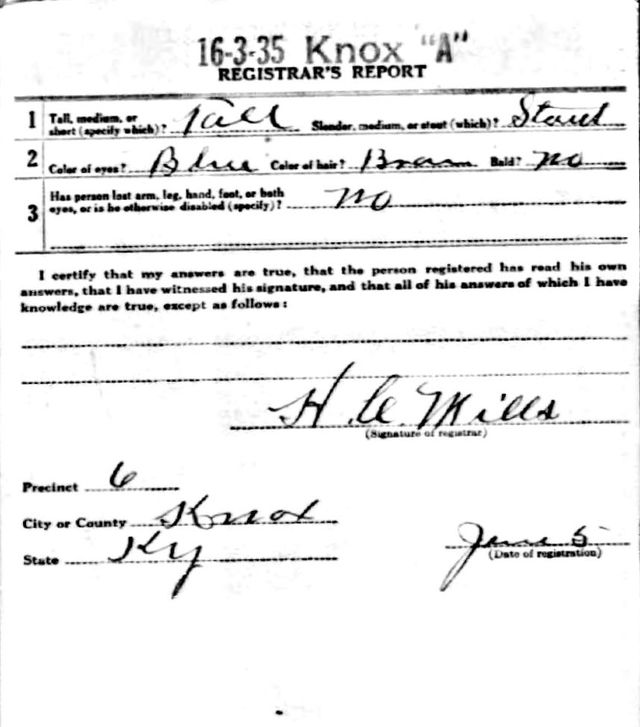 16-3-35 Knox "A"
REGISTRAR'S REPORT
1 Tall, medium, or short (specify which)? Tall Slender, medium, or stout (which)? Stout
2 Color of eyes? Blue Color of hair? Brown Bald? no
3 Has person lost arm, leg, hand, foot, or both eyes, or is he otherwise disabled (specify)? no
I certify that my answers are true, that the person registered has read his own
answers, that I have witnessed his signature, and that all of his answers of which I have
knowledge are true, except as follows:
H. C. Mills
(Signature of registrar)
Precinct 6
City or County Knox
State Ky
June 5
(Date of registration)